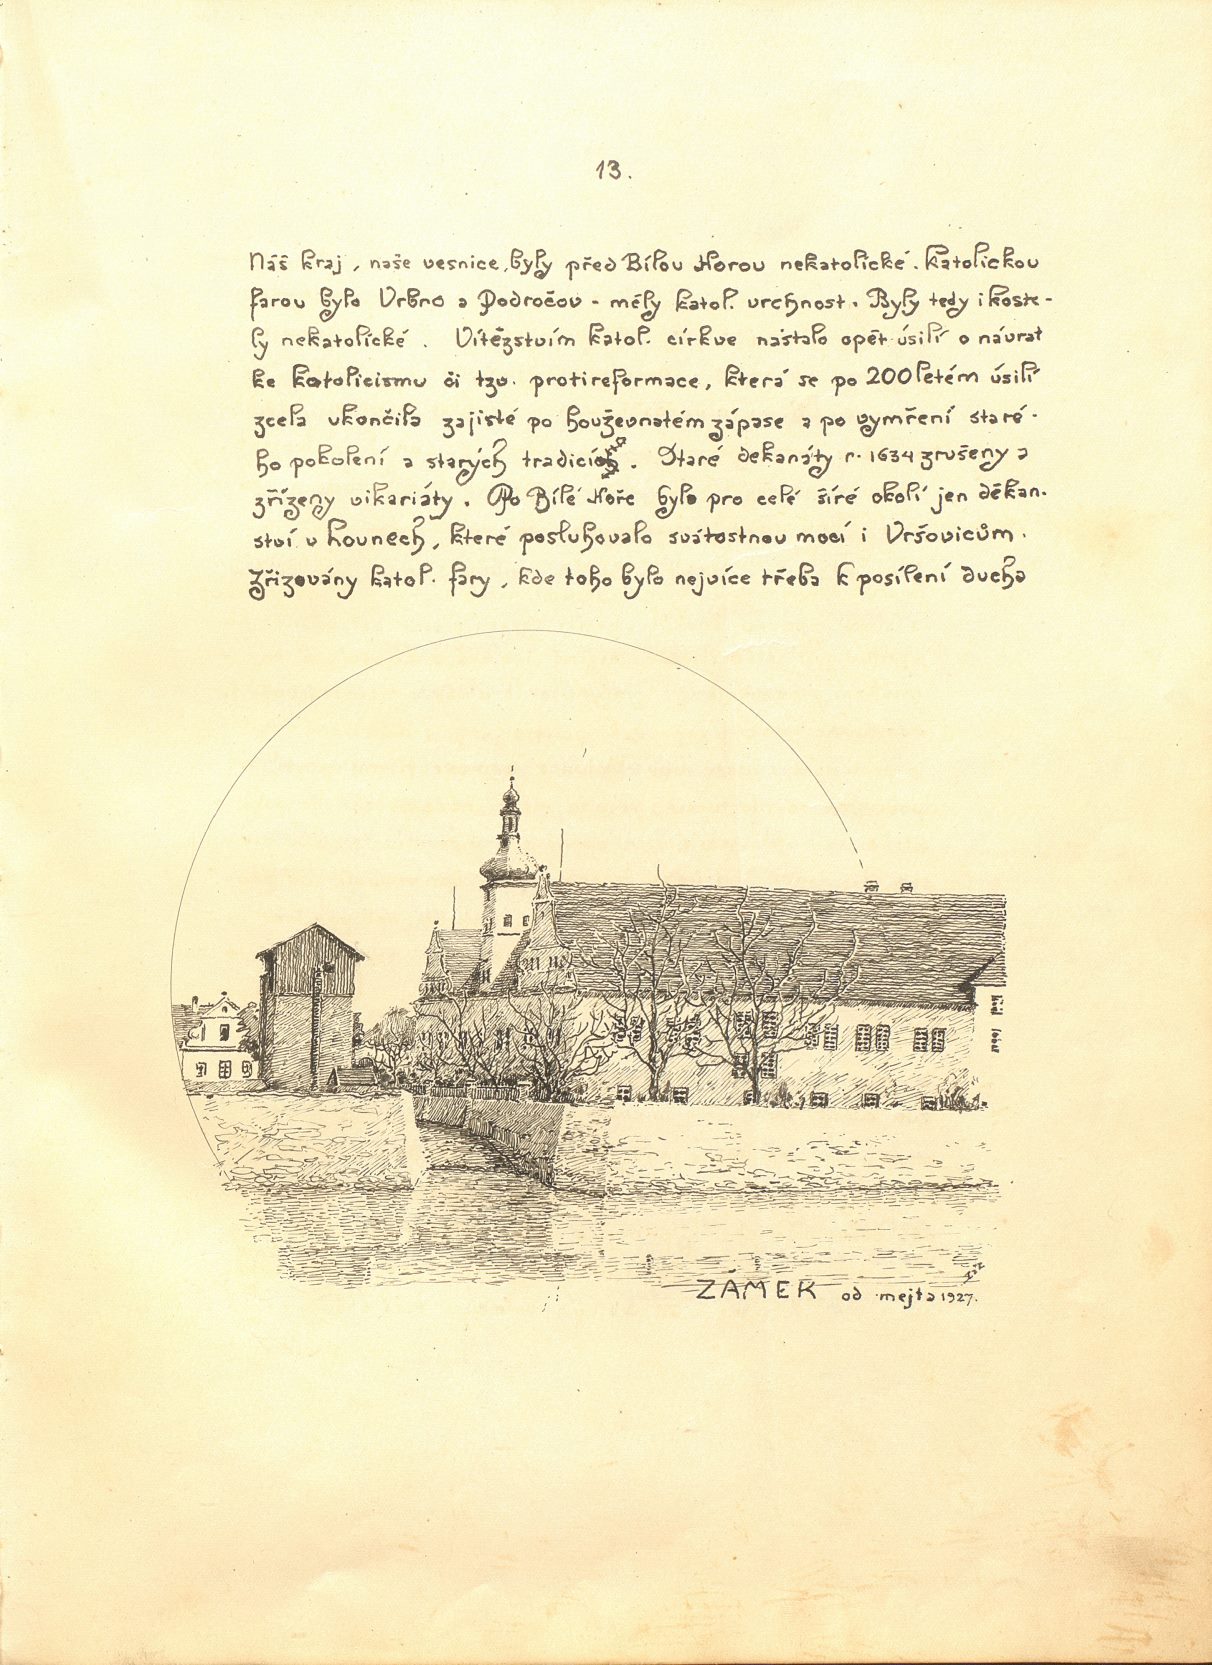 13.
Náš kraj, naše vesnice, byly před Bílou Horou nekatolické. Katolickou
farou bylo Vrbno a Področov - měly katol. vrchnost. Byly tedy i koste-
ly nekatolické. Vítězstvím katol. církve nastalo opět úsilí o návrat
ke katolicismu či tzv. protireformace, která se po 200 letém úsilí
zcela ukončila zajisté po houževnatém zápase a po vymření staré-
ho pokolení a starých tradicí. Staré dekanáty r. 1634 zrušeny a
zřízeny vikariáty. Po Bílé Hoře bylo pro celé šíré okolí jen děkan-
ství v Lounech, které posluhovalo svátostnou mocí i Vršovicům.
Zřizovány katol. fary, kde toho bylo nejvíce třeba k posílení ducha
ZÁMEK od mejta 1927.